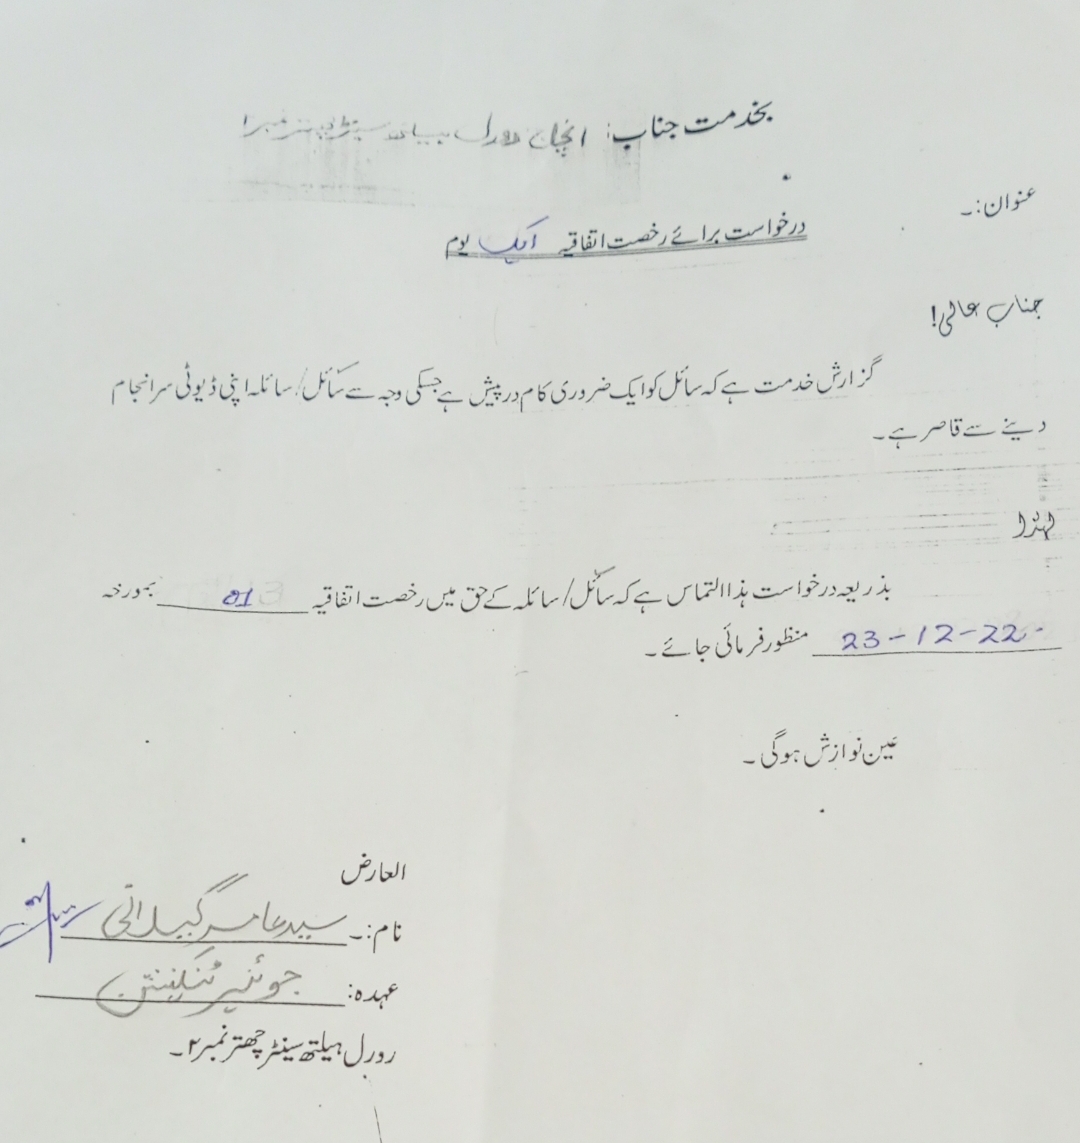 بخدمت جناب: انچارج رورل ہیلتھ سینٹر چھتر نمبر۲
عنوان:۔
درخواست برائے رخصت اتفاقیہ ایک یوم
جناب عالی!
گزارش خدمت ہے کہ سائل کو ایک ضروری کام درپیش ہے جسکی وجہ سے سائل/سائلہ اپنی ڈیوٹی سرانجام
دینے سے قاصر ہے۔
لہٰذا
بذریعہ درخواست ہذا التماس ہے کہ سائل/سائلہ کے حق میں رخصت اتفاقیہ 01 بمورخہ
23-12-22 منظور فرمائی جائے۔
عین نوازش ہوگی۔
العارض
نام:۔ سید عامر گیلانی
عہدہ: جونئیر ٹیکنیشن
رورل ہیلتھ سینٹر چھتر نمبر ۲۔